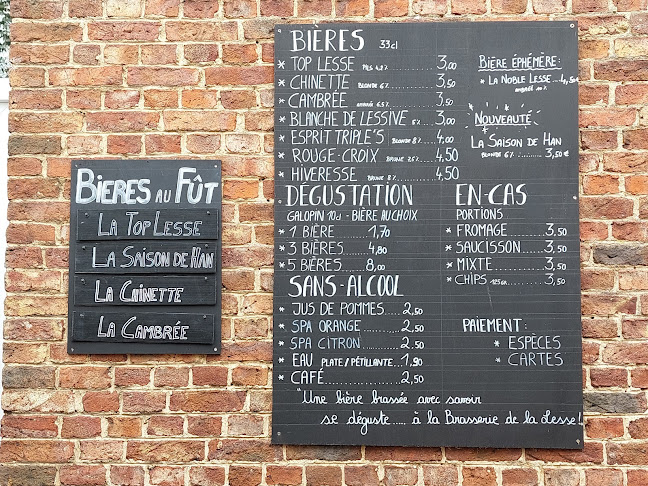 BIERES AU FÛT
LA TOP LESSE
LA SAISON DE HAN
LA CHINETTE
LA CAMBRÉE
BIÈRES 33cl
* TOP LESSE PILS 4.8% ........ 3,00
* CHINETTE BLONDE 6% ........ 3,50
* CAMBRÉE AMBRÉE 6.5% ........ 3,50
* BLANCHE DE LESSIVE 5% ...... 3,00
* ESPRIT TRIPLE'S BLONDE 8% .... 4,00
* ROUGE-CROIX BRUNE 7.5% ...... 4,50
* HIVERESSE BRUNE 8% ........ 4,50
BIÈRE ÉPHÉMÈRE:
* LA NOBLE LESSE....4,50€
AMBRÉE 10%
NOUVEAUTÉ
LA SAISON DE HAN
BLONDE 6% ............ 3,50€
DÉGUSTATION
GALOPIN 10cl - BIÈRE AU CHOIX
* 1 BIÈRE ........ 1,70
* 3 BIÈRES ....... 4,80
* 5 BIÈRES ....... 8,00
EN-CAS
PORTIONS
* FROMAGE ............ 3,50
* SAUCISSON .......... 3,50
* MIXTE .............. 3,50
* CHIPS 125gr ........ 3,50
SANS-ALCOOL
* JUS DE POMMES ...... 2,50
* SPA ORANGE ......... 2,50
* SPA CITRON ......... 2,50
* EAU PLATE/PÉTILLANTE .. 1,90
* CAFÉ ............... 2,50
PAIEMENT:
* ESPÈCES
* CARTES
"Une bière brassée avec savoir
se déguste..... à la Brasserie de la Lesse!